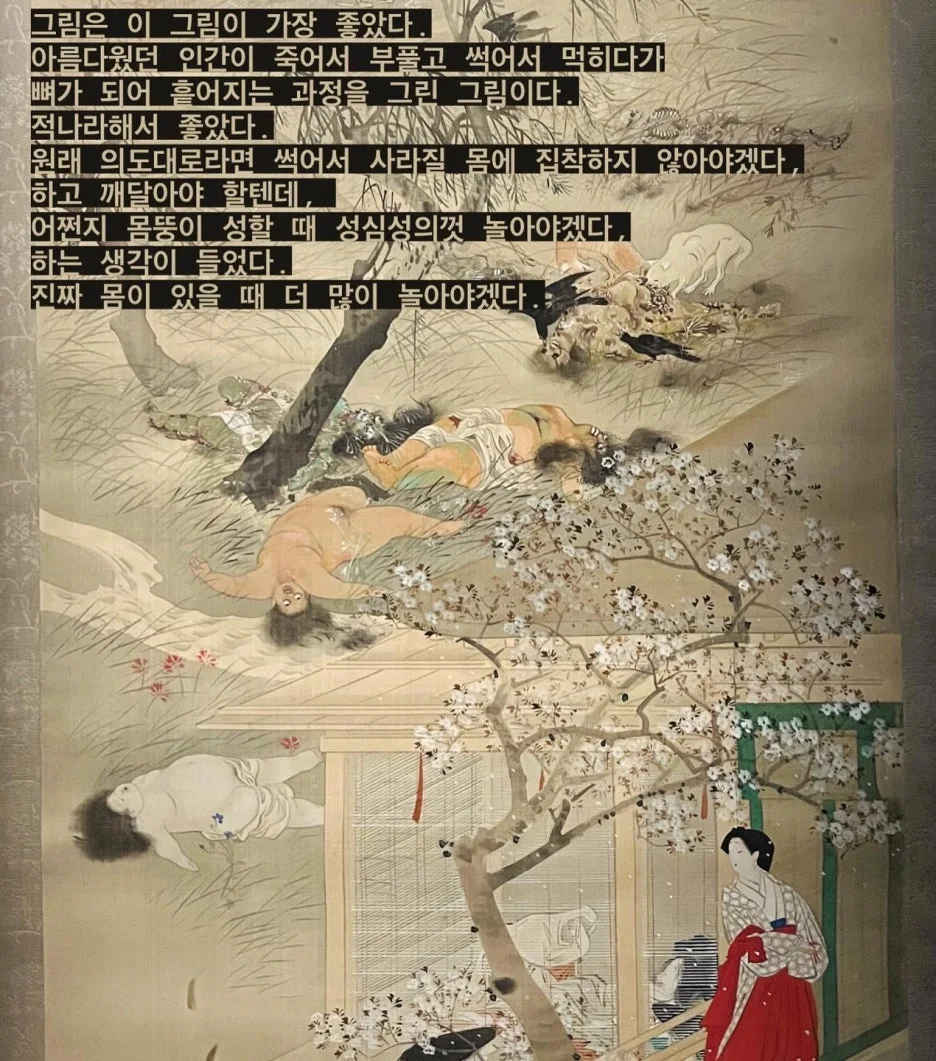 그림은 이 그림이 가장 좋았다.
아름다웠던 인간이 죽어서 부풀고 썩어서 먹히다가
뼈가 되어 흩어지는 과정을 그린 그림이다.
적나라해서 좋았다.
원래 의도대로라면 썩어서 사라질 몸에 집착하지 않아야겠다,
하고 깨달아야 할텐데,
어쩐지 몸뚱이 성할 때 성심성의껏 놀아야겠다,
하는 생각이 들었다.
진짜 몸이 있을 때 더 많이 놀아야겠다.